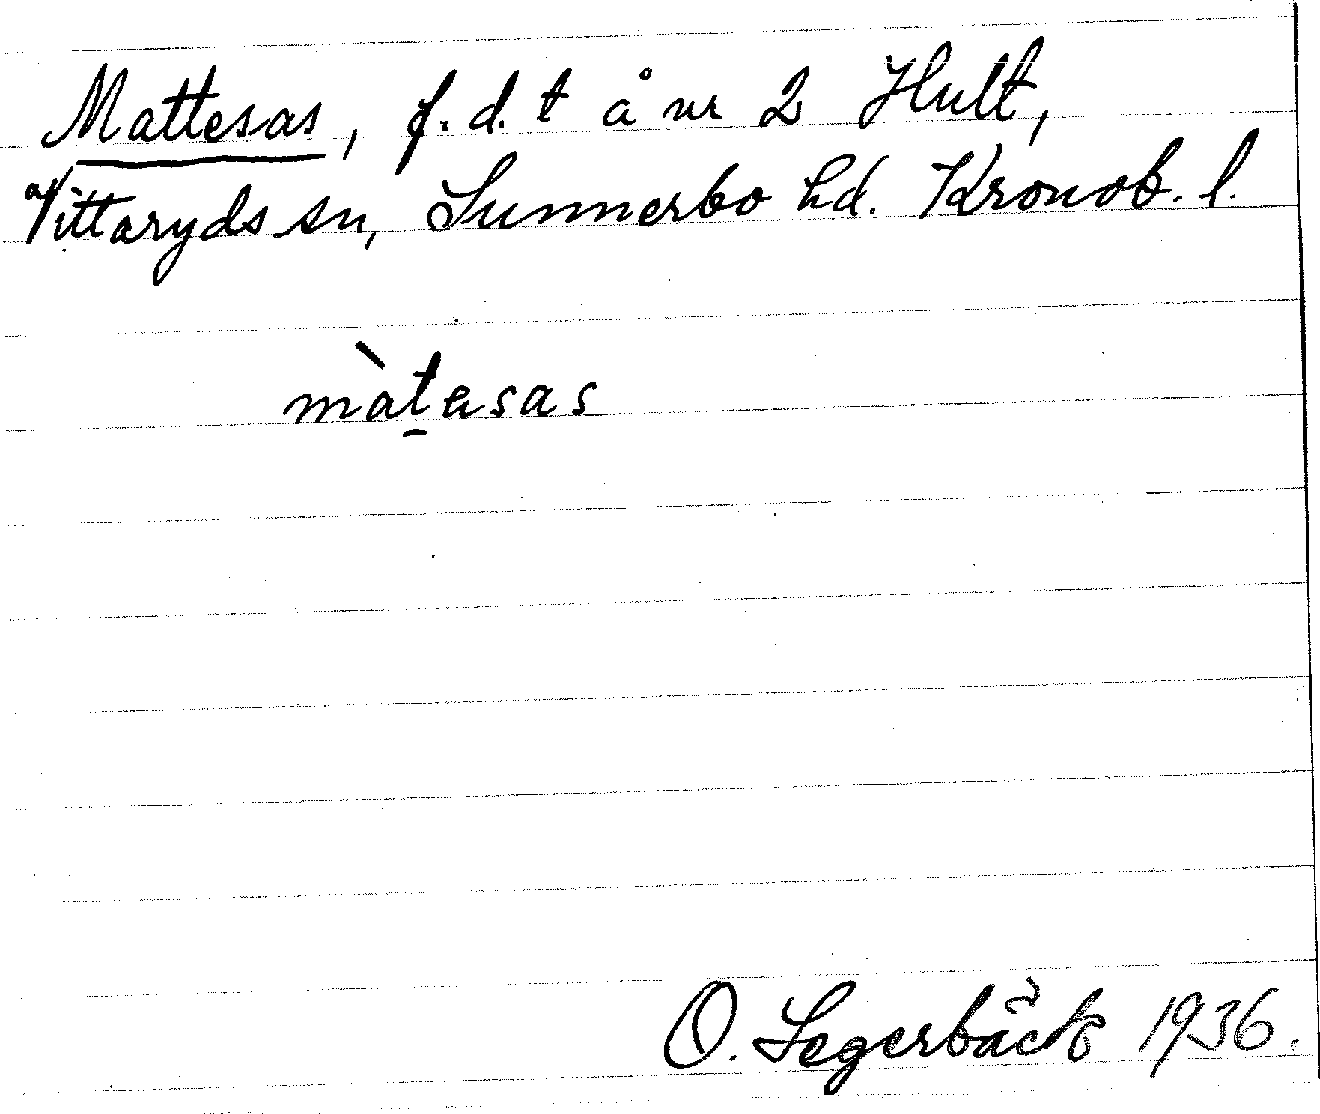 Mattesas, f. d. t å nr 2 Hult,
Vittaryds sn, Sunnerbo hd. Kronob. l.
màt̠esas
O. Segerbäck 1936.